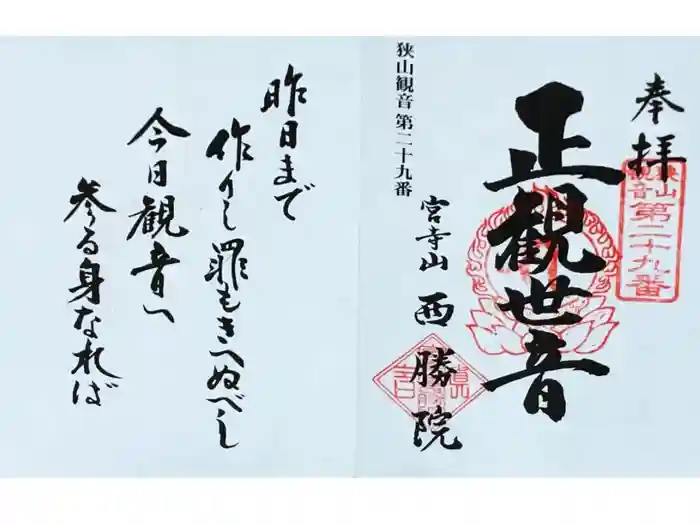 奉拝
狭山
観音
第二十九番
正觀世音
狭山観音 第二十九番
宮寺山 西勝院
昨日まで
作りし罪もきへぬべし
今日觀音へ
参る身なれば